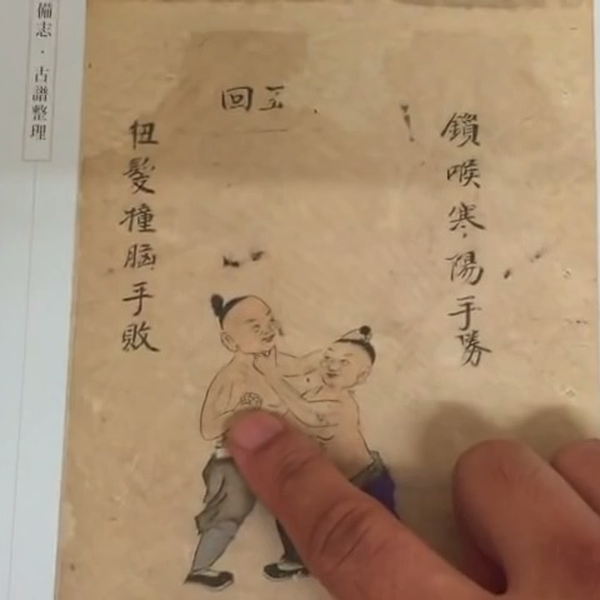 五回
鎖喉寒陽手勝
扭髮撞腦手敗
備志·古譜整理